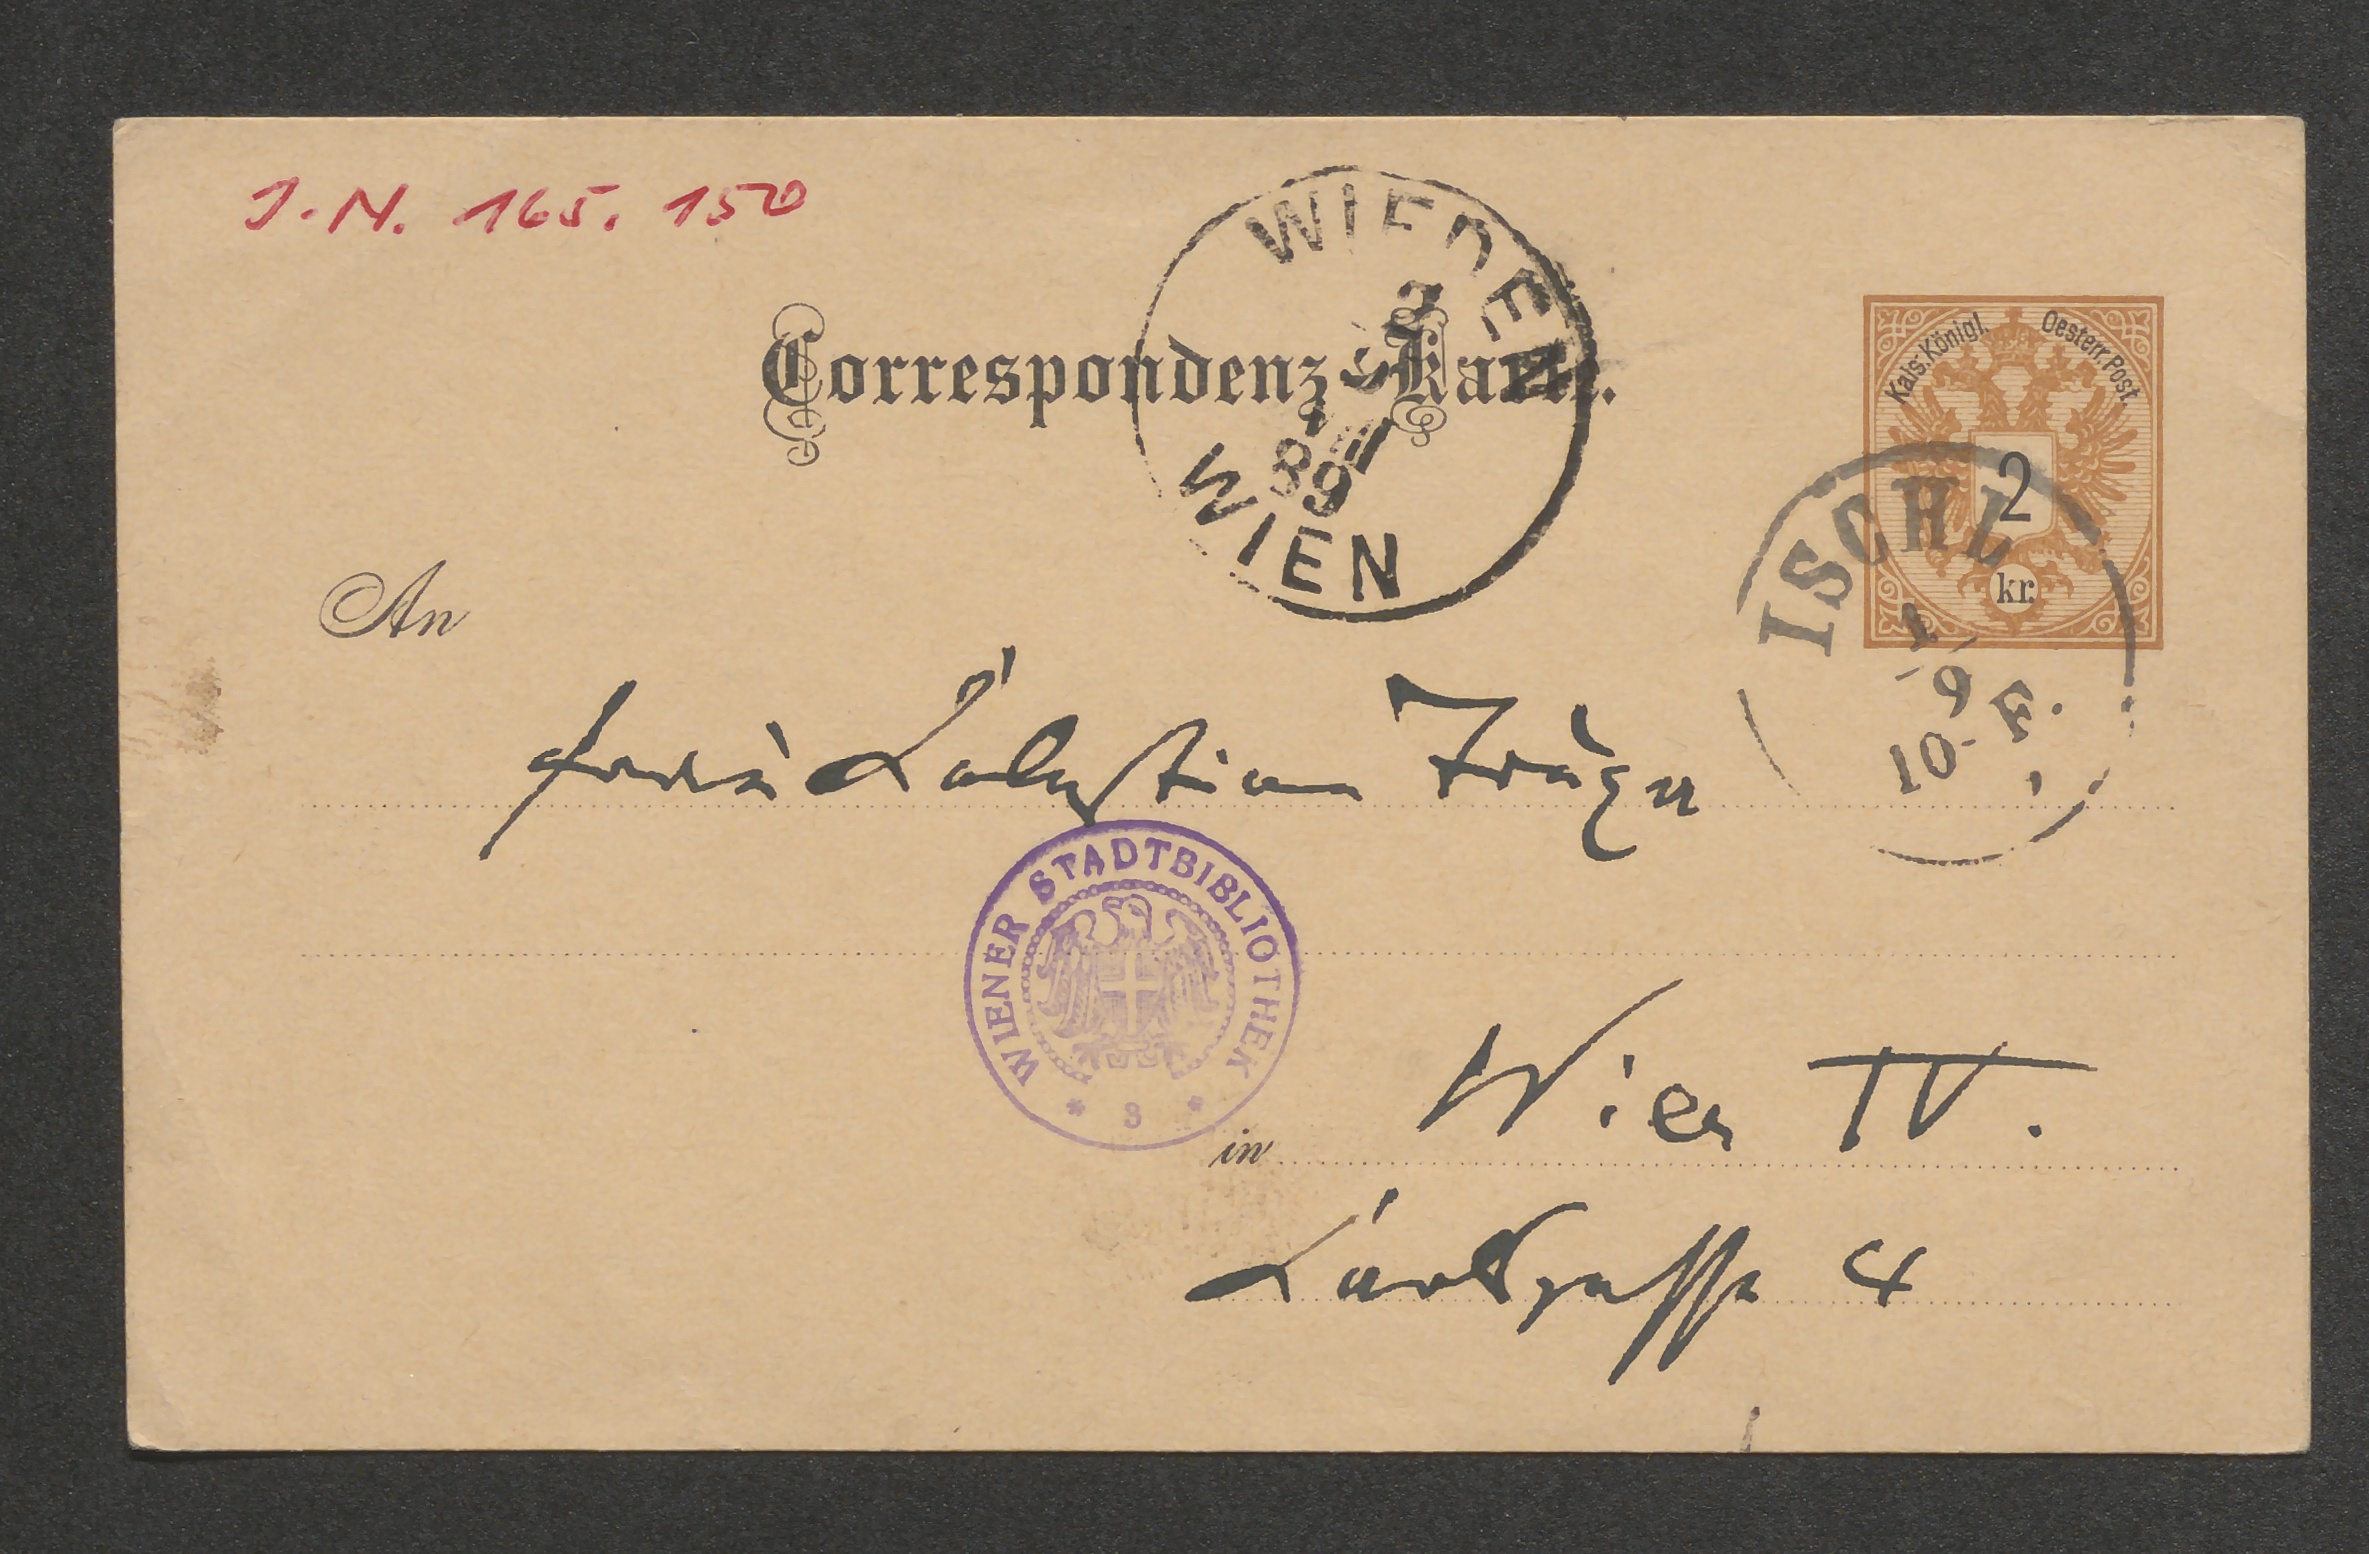 J.N. 165.150
WIEDEN
WIEN
89
Correspondenz-Karte.
Kais. Königl. Oesterr. Post.
2
kr.
ISCHL
1
9
10-F.
An
Frau Truxa
WIENER STADTBIBLIOTHEK
* 8 *
in Wien IV.
Carlsgasse 4